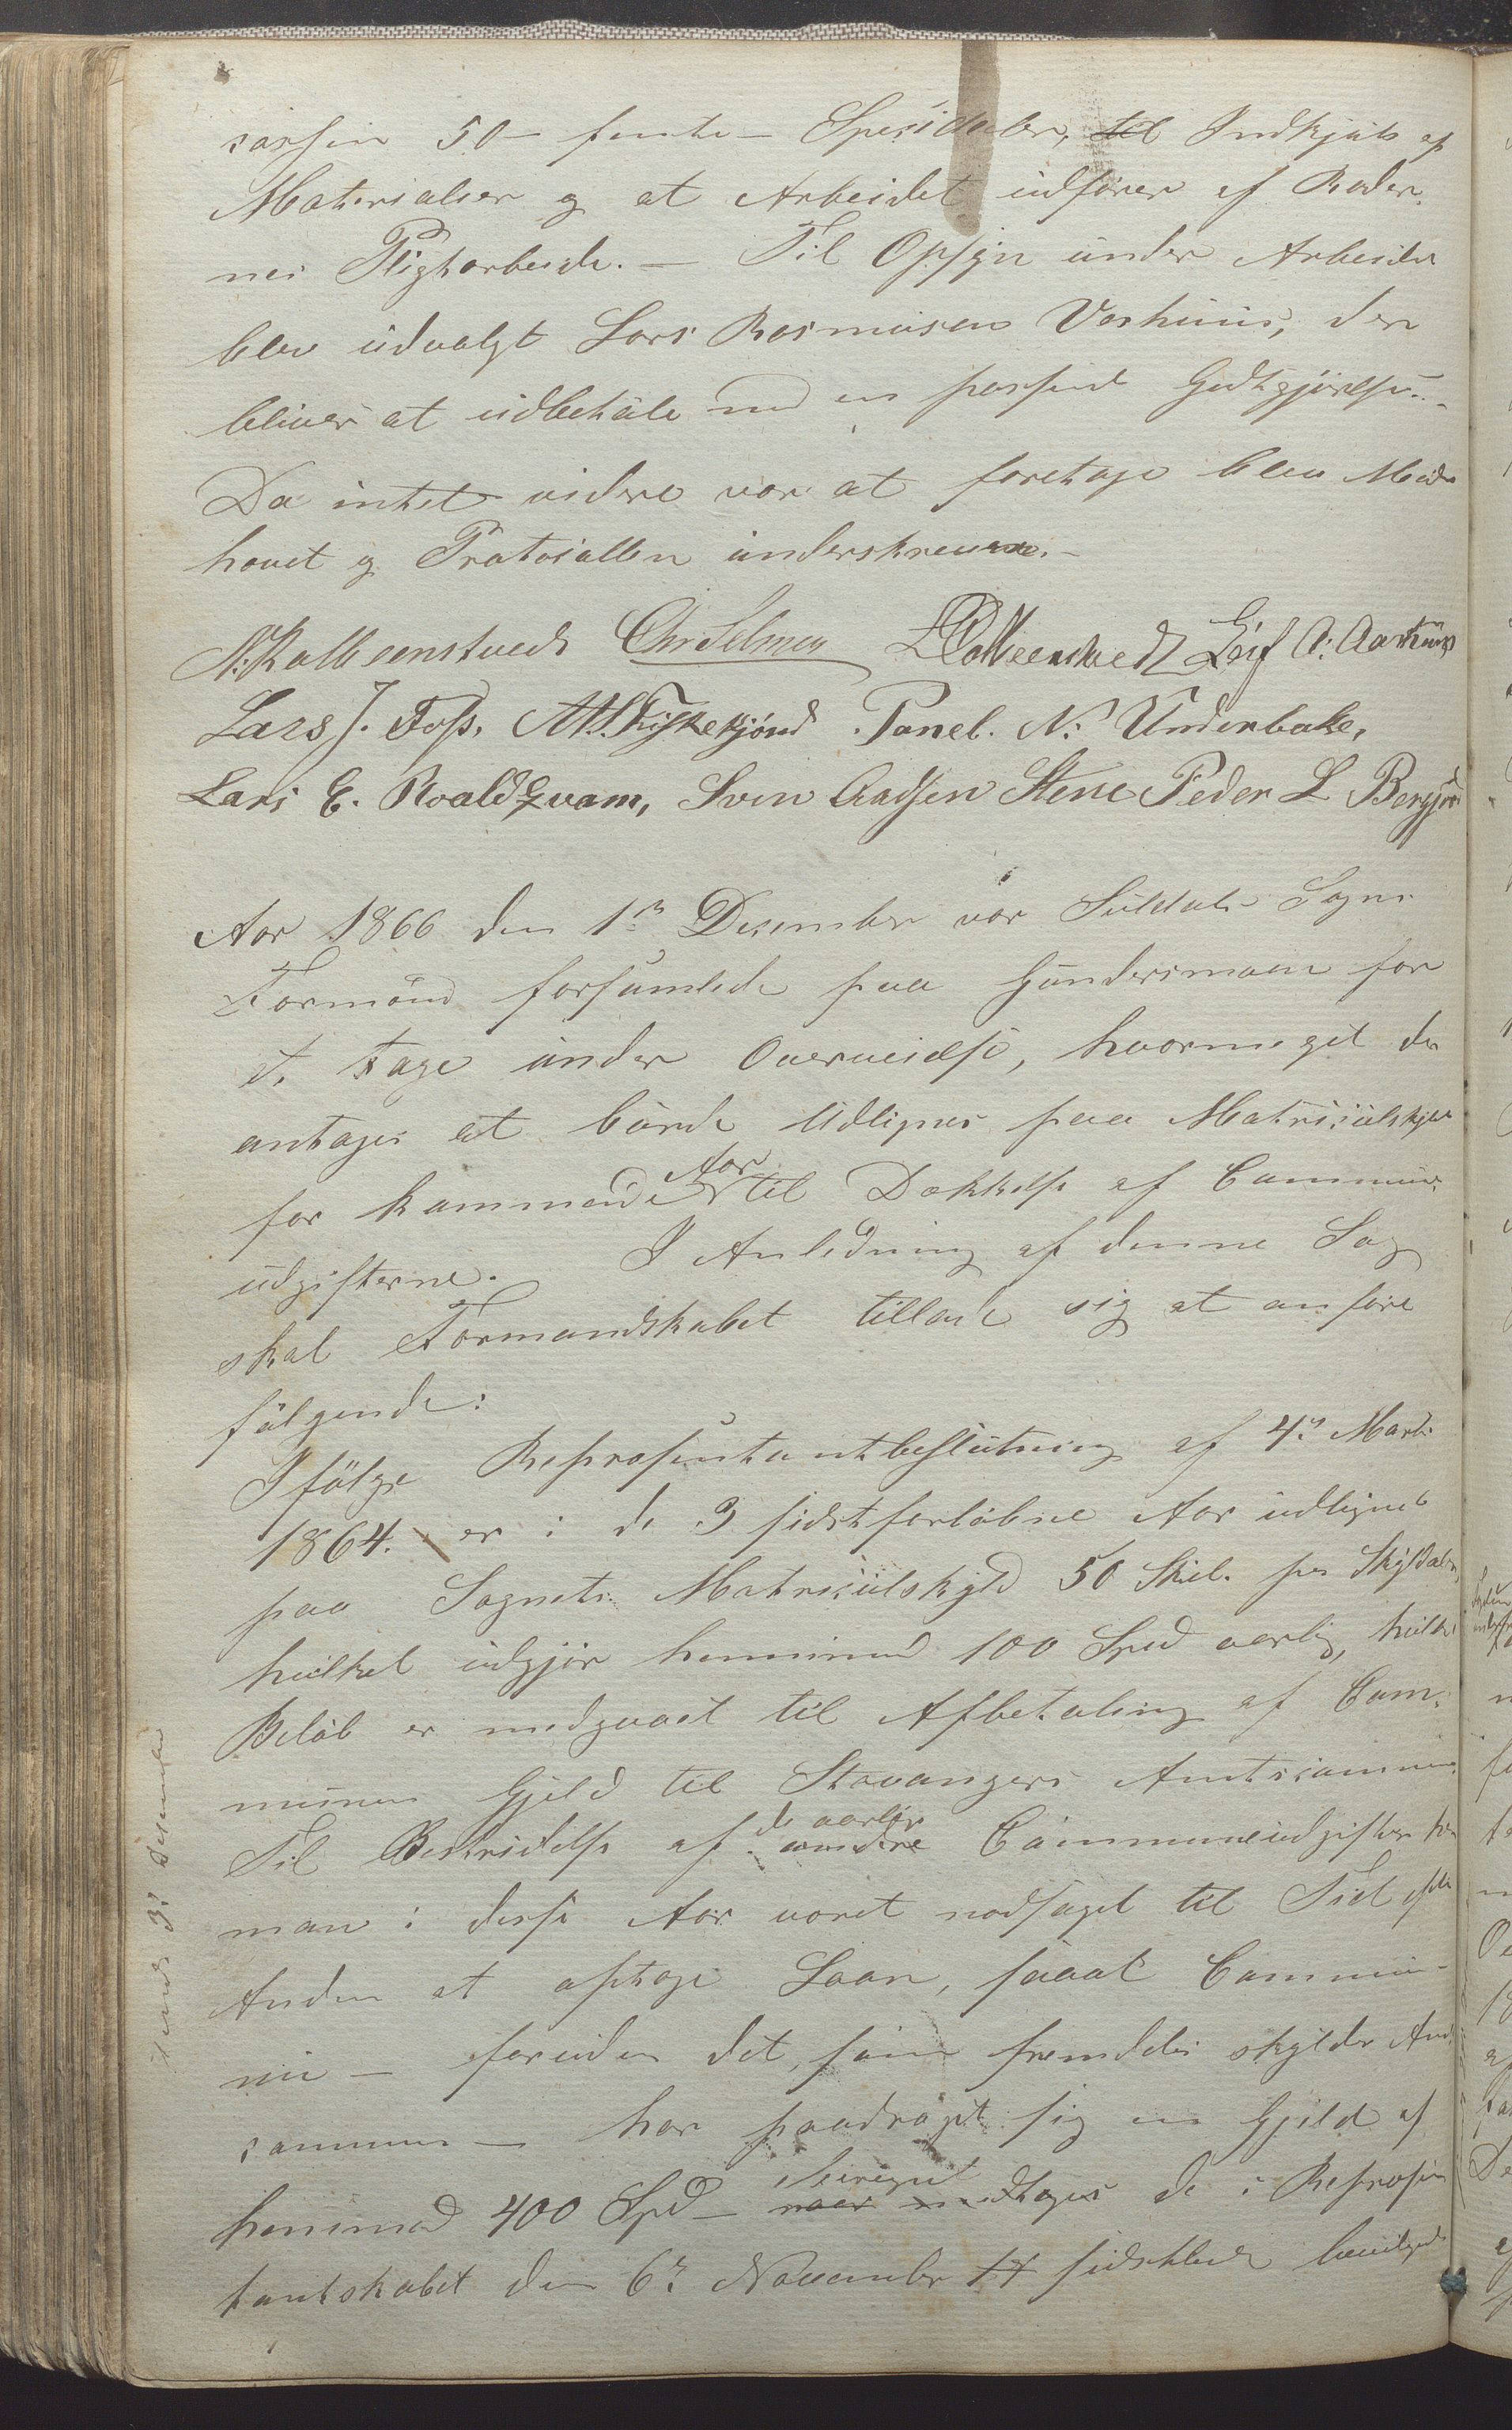 cassen 50 – femti – Spesidaler, til Indkjøb af
Materialier og at Arbeidet udføres af Roder,
nes Pligtarbeide. – Til Opsyn under Arbeidet
blev udvalgt Lars Rasmusen Vashuus, der
bliver at udbetale med en passende Godtgjørelse. –
Da intet videre var at foretage blev Mødet
hævet og Protocollen underskreven. –
N. Kolbeenstvedt Chr Selmer L Kolbeenstvedt Leif A. Aarhuus
Lars J. Foss, A.H. Fiskekjønd. Panel. N. Underbake,
Lars E. Roaldqvam, Sven Aadsen Stene Peder L Bergjord
Aar 1866 den 1ste Desember var Suldals Sogns
Formænd forsamlede paa Gundersmoen for
at tage under Overveielse, hvormeget der
antages at burde Udlignes paa Matriculskyld
for kommende Aar til Dækkelse af Commune
udgifterne. I Anledning af denne Sag
skal Formandskabet tillade sig at anføre
følgende:
Ifølge Representantbeslutning af 4de Marts
1864. er i de 3 sidstforløbne Aar udlignet
paa Sognets Matriculskyld 50 Skil. pr Skylddaler,
hvilket udgjør henimod 100 Spd aarlig, hvilket
Beløb er medgaaet til Afbetaling af Com,
munens Gjeld til Stavangers Amtscommune.
Til Bestridelse af de aarlige andre Communeudgifter har
man i disse Aar været nødsaget til Tid efter
Anden at optage Laan, saaat Communen
nu – foruden det, som fremdeles skyldes Amts
communen – har paadraget sig en Gjeld af
henimod 400 Spd – iberegnet naar medtages de i Represen
tantskabet den 6te November 14 sidstleden bevilgede